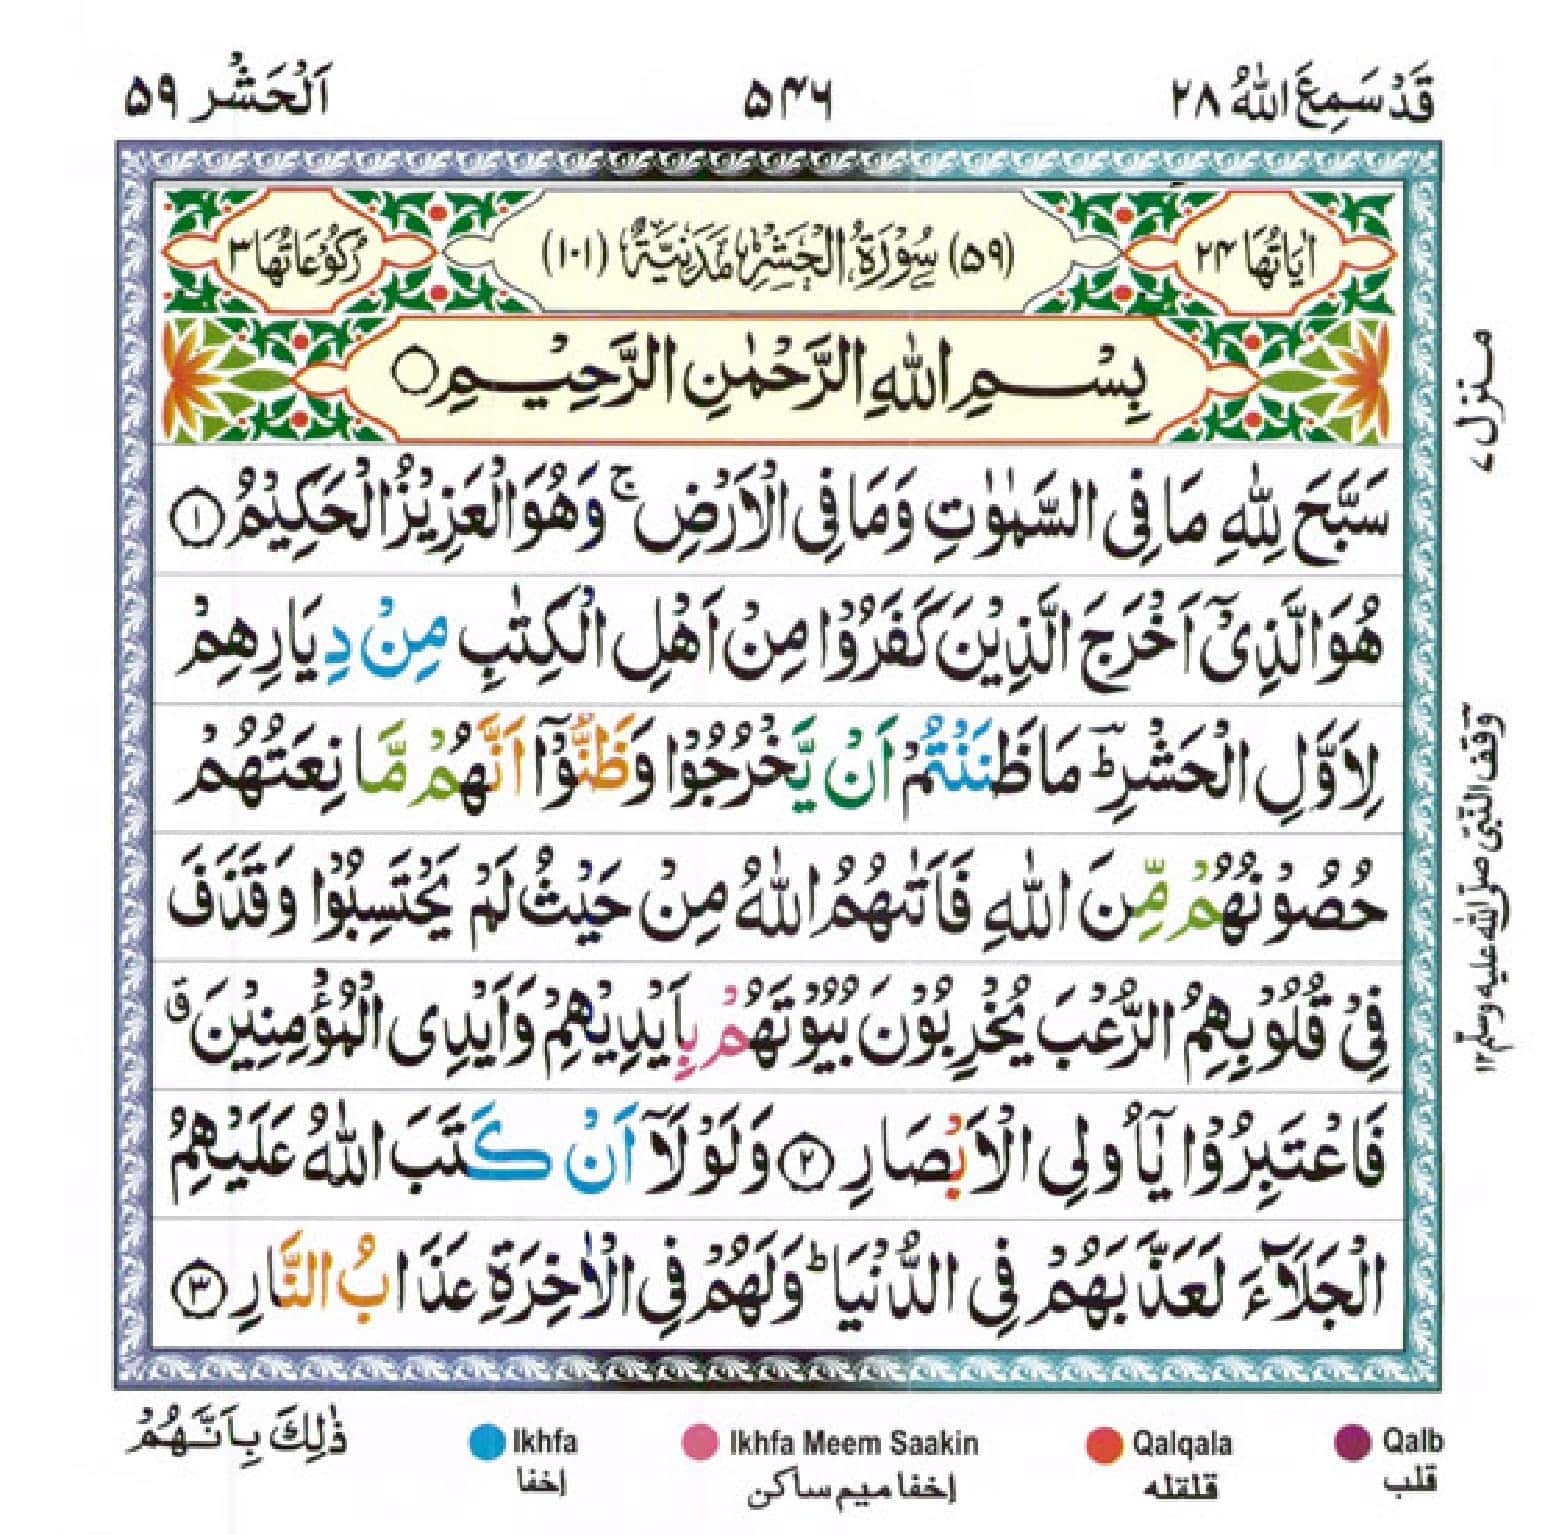 قَدْ سَمِعَ اللّٰهُ ٢٨
۵۴۶
اَلْحَشْر ۵۹
اٰیَاتُهَا ٢۴
(۵۹) سُوْرَةُ الْحَشْرِ مَدَنِیَّةٌ (١٠١)
رُكُوْعَاتُهَا ٣
بِسْمِ اللّٰهِ الرَّحْمٰنِ الرَّحِیْمِ ○
سَبَّحَ لِلّٰهِ مَا فِی السَّمٰوٰتِ وَمَا فِی الْاَرْضِ ۚ وَهُوَ الْعَزِیْزُ الْحَكِیْمُ ١
هُوَ الَّذِیْۤ اَخْرَجَ الَّذِیْنَ كَفَرُوْا مِنْ اَهْلِ الْكِتٰبِ مِنْ دِیَارِهِمْ
لِاَوَّلِ الْحَشْرِ ؕ مَا ظَنَنْتُمْ اَنْ یَّخْرُجُوْا وَظَنُّوْۤا اَنَّهُمْ مَّا نِعَتُهُمْ
حُصُوْنُهُمْ مِّنَ اللّٰهِ فَاَتٰىهُمُ اللّٰهُ مِنْ حَیْثُ لَمْ یَحْتَسِبُوْا وَقَذَفَ
فِیْ قُلُوْبِهِمُ الرُّعْبَ یُخْرِبُوْنَ بُیُوْتَهُمْ بِاَیْدِیْهِمْ وَاَیْدِی الْمُؤْمِنِیْنَ ۗ
فَاعْتَبِرُوْا یٰۤاُولِی الْاَبْصَارِ ٢ وَلَوْلَاۤ اَنْ كَتَبَ اللّٰهُ عَلَیْهِمُ
الْجَلَآءَ لَعَذَّبَهُمْ فِی الدُّنْیَا ؕ وَلَهُمْ فِی الْاٰخِرَةِ عَذَابُ النَّارِ ٣
منزل ٧
وقف النبی صلی الله علیه وسلم ١٢
ذٰلِكَ بِاَنَّهُمْ
Ikhfa
إخفا
Ikhfa Meem Saakin
إخفا میم ساكن
Qalqala
قلقله
Qalb
قلب